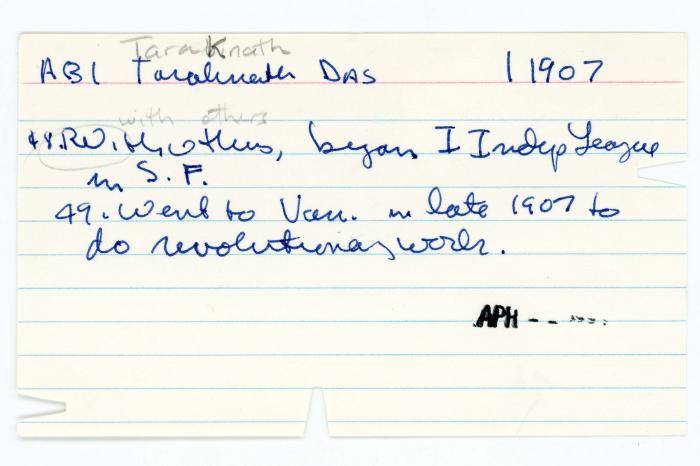 TaraKnath
ABI Taraknath DAS | 1907
with others
48. With others, began I Indep League
in S. F.
49. Went to Van. in late 1907 to
do revolutionary work.
APH - -